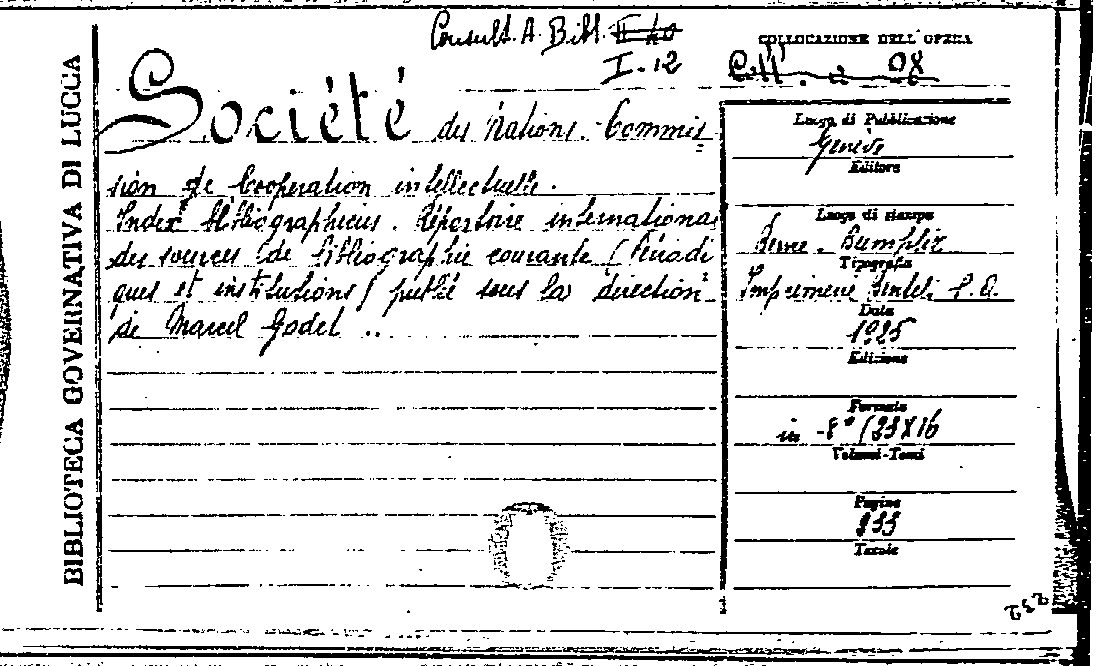 Consult. A. Bibl. II-40
I. 12
COLLOCAZIONE DELL'OPERA
Coll. a 98
BIBLIOTECA GOVERNATIVA DI LUCCA
Société des Nations. Commis
sion de Cooperation intellectuelle.
Index bibliographicus. Répertoire international
des sources de bibliographie courante (Périodi
ques et institutions) publié sous la direction
de Marcel Godet ..
Luogo di Pubblicazione
Genève
Editore
Luogo di stampa
Berne. Bumpliz
Tipografia
Imprimerie Benteli S.A.
Data
1925
Edizione
Formato
in -8° (23X16
Volumi-Tomi
Pagine
233
Tavole